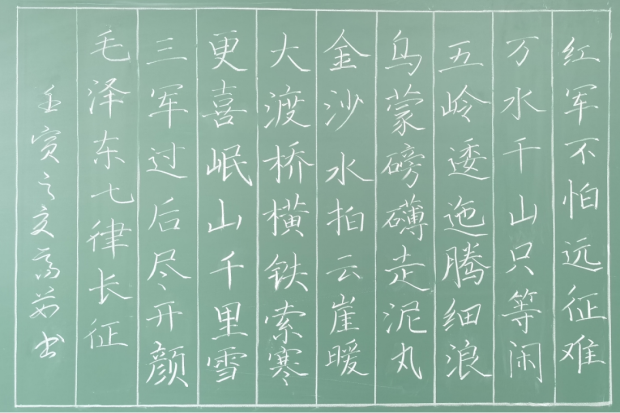 红军不怕远征难
万水千山只等闲
五岭逶迤腾细浪
乌蒙磅礴走泥丸
金沙水拍云崖暖
大渡桥横铁索寒
更喜岷山千里雪
三军过后尽开颜
毛泽东七律长征
壬寅之夏高茹书